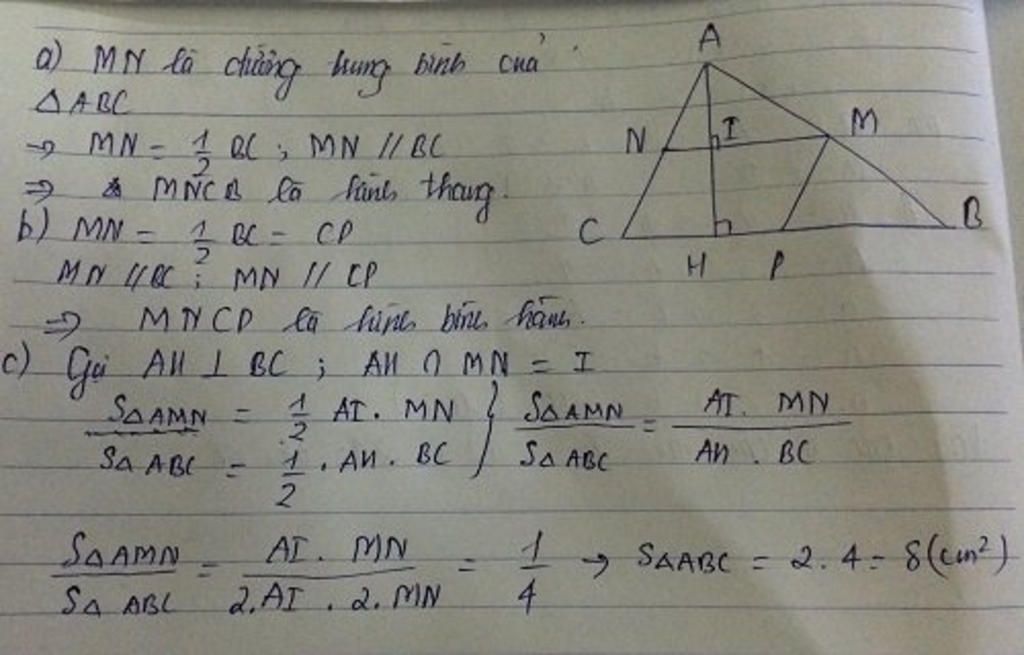 a) MN là đường trung bình của
△ABC
→ MN = 1/2 BC ; MN // BC
⇒ MNCB là hình thang.
b) MN = 1/2 BC = CP
MN // BC ; MN // CP
⇒ MNCP là hình bình hành.
c) Gọi AH ⊥ BC ; AH ∩ MN = I
S△AMN = 1/2 AI . MN } S△AMN/S△ABC = AI . MN/AH . BC
S△ABC = 1/2 . AH . BC
S△AMN/S△ABC = AI . MN/2.AI . 2.MN = 1/4 → S△ABC = 2.4 = 8 (cm²)
A
N I M
C B
H P